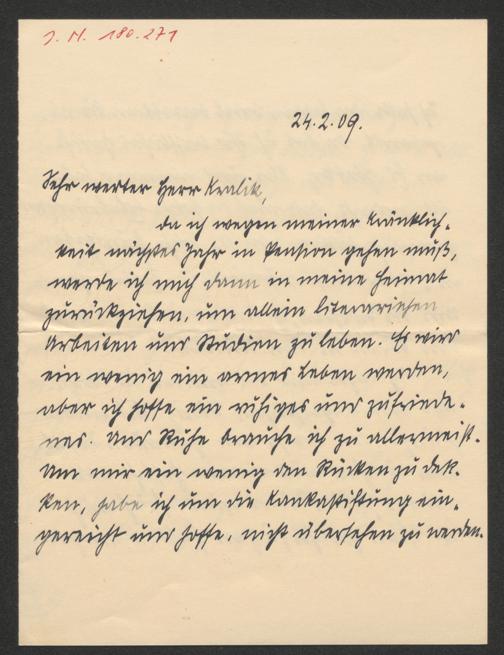 J. N. 180.271
24.2.09.
Sehr werter Herr Kralik,
da ich wegen meiner Kränklich-
keit nächstes Jahr in Pension gehen muß,
werde ich mich dann in meine Heimat
zurückziehen, um allein literarischen
Arbeiten und Studien zu leben. Es wird
ein wenig ein armes Leben werden,
aber ich hoffe ein ruhiges und zufriede-
nes. Und Ruhe brauche ich zu allermeist.
Um mir ein wenig den Rücken zu dek-
ken, habe ich um die Lankastiftung ein-
gereicht und hoffe, nicht übersehen zu werden.